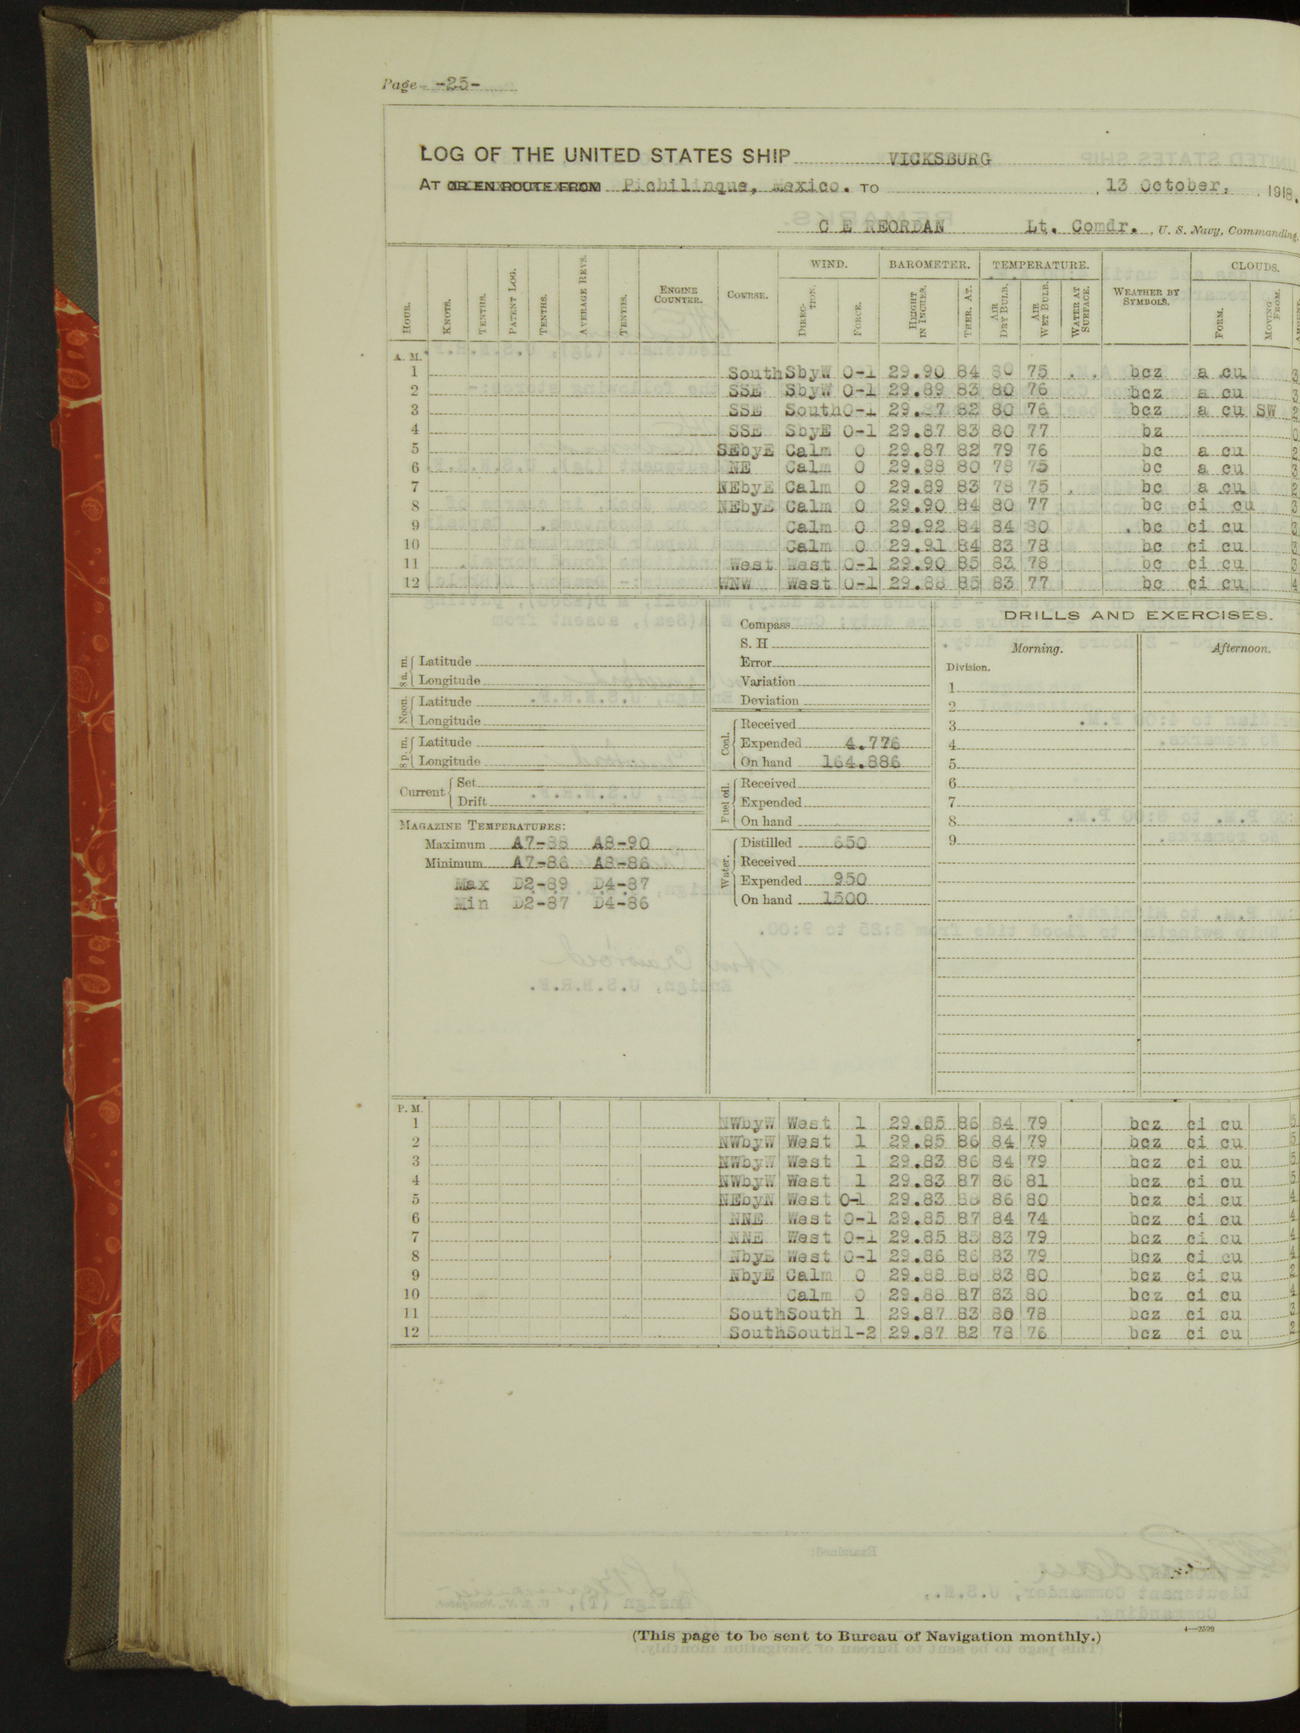 Page -25-
LOG OF THE UNITED STATES SHIP VICKSBURG
AT OR EN ROUTE FROM Pichilinque, Mexico. TO , 13 October, , 1918.
C E REORDAN Lt. Comdr. , U. S. Navy, Commanding.
WIND. BAROMETER. TEMPERATURE. CLOUDS.
HOUR. KNOTS. TENTHS. PATENT LOG. TENTHS. AVERAGE REVS. TENTHS. ENGINE COUNTER. COURSE. DIREC-TION. FORCE. HEIGHT IN INCHES. THER. AT. AIR DRY BULB. AIR WET BULB. WATER AT SURFACE. WEATHER BY SYMBOLS. FORM. MOVING FROM.
A. M.
1 South SbyW 0-1 29.90 84 80 75 bcz a cu 3
2 SSE SbyW 0-1 29.89 83 80 76 bcz a cu 3
3 SSE South 0-1 29. 7 82 80 76 bcz a cu SW 2
4 SSE SbyE 0-1 29.87 83 80 77 bz 0
5 SEbyE Calm 0 29.87 82 79 76 bc a cu 2
6 NE Calm 0 29.88 80 78 75 bc a cu 3
7 NEbyE Calm 0 29.89 83 78 75 bc a cu 2
8 NEbyE Calm 0 29.90 84 80 77 bc ci cu 3
9 Calm 0 29.92 84 84 80 bc ci cu 3
10 Calm 0 29.91 84 83 78 bc ci cu 3
11 West West 0-1 29.90 85 83 78 bc ci cu 3
12 WNW West 0-1 29.88 85 83 77 bc ci cu 4
Compass
S. H
Error
Variation
Deviation
DRILLS AND EXERCISES.
Morning. Afternoon.
Division.
1
2
3
4
5
6
7
8
9
8 a. m. Latitude
Longitude
Noon. Latitude
Longitude
8 p. m. Latitude
Longitude
Current Set
Drift
Coal. Received
Expended 4.776
On hand 164.886
Fuel oil. Received
Expended
On hand
Water. Distilled 650
Received
Expended 950
On hand 1500
MAGAZINE TEMPERATURES:
Maximum A7-88 A8-90
Minimum A7-86 A8-86
Max D2-89 D4-87
Min D2-87 D4-86
P. M.
1 NWbyW West 1 29.85 86 84 79 bcz ci cu 5
2 NWbyW West 1 29.85 86 84 79 bcz ci cu 5
3 NWbyW West 1 29.83 86 84 79 bcz ci cu 5
4 NWbyW West 1 29.83 87 86 81 bcz ci cu 5
5 NEbyN West 0-1 29.83 86 80 bcz ci cu 4
6 NNE West 0-1 29.85 87 84 74 bcz ci cu 4
7 NNE West 0-1 29.85 85 83 79 bcz ci cu 4
8 NbyE West 0-1 29.86 86 83 79 bcz ci cu 4
9 NbyE Calm 0 29.88 88 83 80 bcz ci cu 2
10 Calm 0 29.88 87 83 80 bcz ci cu 4
11 South South 1 29.87 83 80 78 bcz ci cu 2
12 South South 1-2 29.87 82 78 76 bcz ci cu 2
(This page to be sent to Bureau of Navigation monthly.)
4—2529